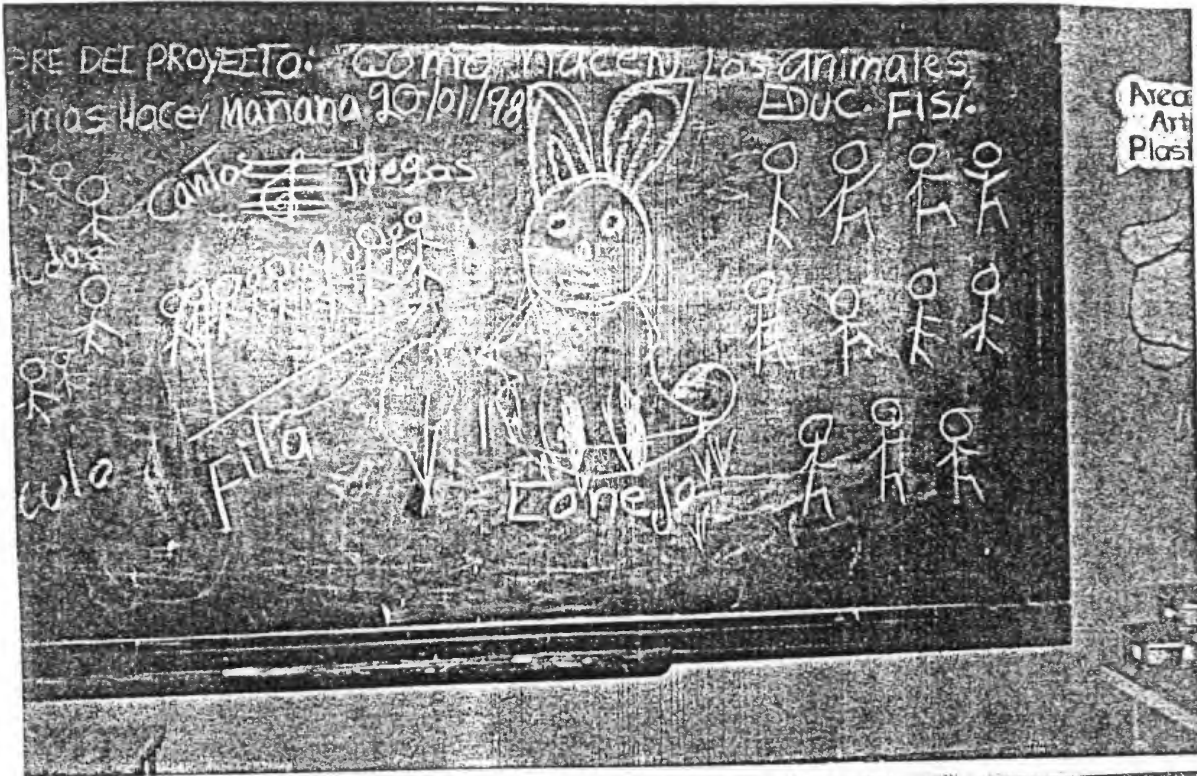 BRE DEL PROYECTO: Como Nacen Los animales
amos Hacer Mañana 20/01/98 EDUC. FISI.
Canto Juegos
Fila
culo
Conejo
Area
Art
Plast